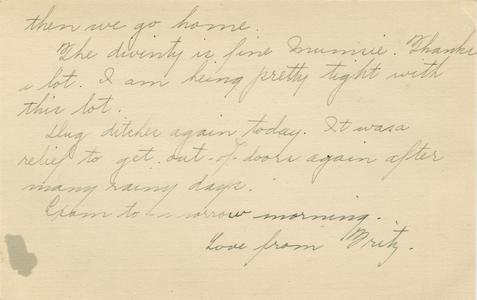 then we go home.
The divinty is fine Mumsie. Thanks
a lot. I am being pretty tight with
this lot.
Dug ditches again today. It was a
relief to get out of doors again after
many rainy days.
Exam to-morrow morning.
Love from Fritz.